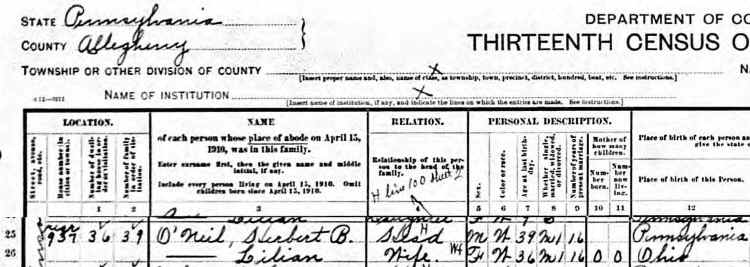 STATE Pennsylvania
COUNTY Allegheny
DEPARTMENT OF CO
THIRTEENTH CENSUS O
TOWNSHIP OR OTHER DIVISION OF COUNTY X
[Insert proper name and, also, name of class, as township, town, precinct, district, hundred, beat, etc. See instructions.]
NAME OF INSTITUTION X
[Insert name of institution, if any, and indicate the lines on which the entries are made. See instructions.]
LOCATION.
Street, avenue, road, etc.
House number (in cities or towns).
Number of dwelling house in order of visitation.
Number of family in order of visitation.
NAME
of each person whose place of abode on April 15, 1910, was in this family.
Enter surname first, then the given name and middle initial, if any.
Include every person living on April 15, 1910. Omit children born since April 15, 1910.
RELATION.
Relationship of this person to the head of the family.
H line 100 sheet 2
PERSONAL DESCRIPTION.
Sex.
Color or race.
Age at last birthday.
Whether single, married, widowed, or divorced.
Number of years of present marriage.
Mother of how many children.
Number born.
Number now living.
Place of birth of each person an
give the state o
Place of birth of this Person.
1 2 3 4 5 6 7 8 9 10 11 12
Lilian
25 937 36 39 O'Neil, Herbert B. Head H M W 39 M1 16 Pennsylvania
26 Lilian Wife F W 36 M1 16 0 0 Ohio